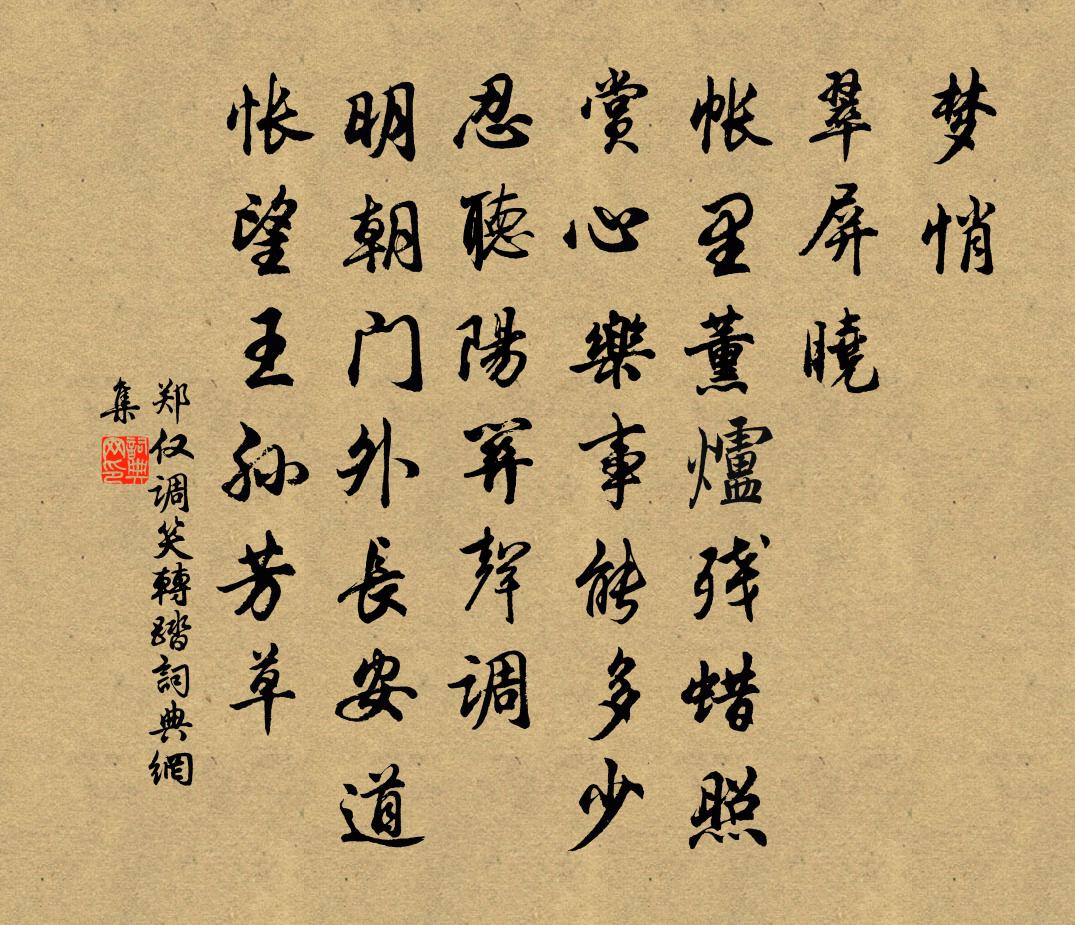 梦悄
翠屏曉
帐里薰爐残蜡照
赏心樂事能多少
忍聽陽關聲调
明朝门外長安道
怅望王孙芳草
郑仅调笑轉踏詞典網
集
詞典网印